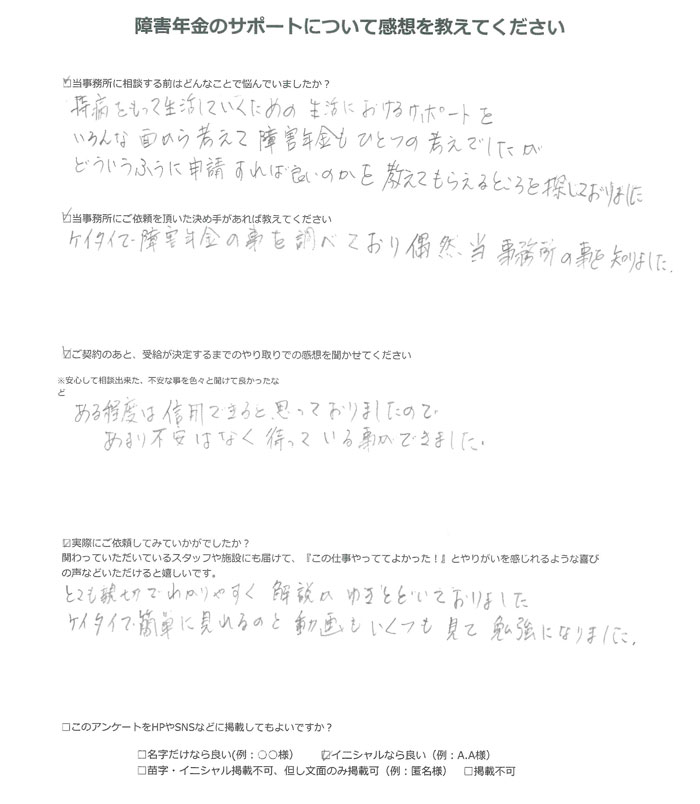 障害年金のサポートについて感想を教えてください
☑当事務所に相談する前はどんなことで悩んでいましたか？
持病をもって生活していくための生活におけるサポートを
いろんな面から考えて障害年金もひとつの考えでしたが
どういうふうに申請すれば良いのかを教えてもらえるところを探しておりました
☑当事務所にご依頼を頂いた決め手があれば教えてください
ケイタイで障害年金の事を調べており偶然、当事務所の事を知りました。
☑ご契約のあと、受給が決定するまでのやり取りでの感想を聞かせてください
※安心して相談出来た、不安な事を色々と聞けて良かったな
ど
ある程度は信用できると思っておりましたので
あまり不安はなく待っている事ができました。
☑実際にご依頼してみていかがでしたか？
関わっていただいているスタッフや施設にも届けて、『この仕事やっててよかった！』とやりがいを感じれるような喜び
の声などいただけると嬉しいです。
とても親切でわかりやすく解説がゆきとどいておりました
ケイタイで簡単に見れるのと動画もいくつも見て勉強になりました。
☐このアンケートをHPやSNSなどに掲載してもよいですか？
☐名字だけなら良い(例：○○様）　☑イニシャルなら良い（例：A.A様）
☐苗字・イニシャル掲載不可、但し文面のみ掲載可（例：匿名様）　☐掲載不可